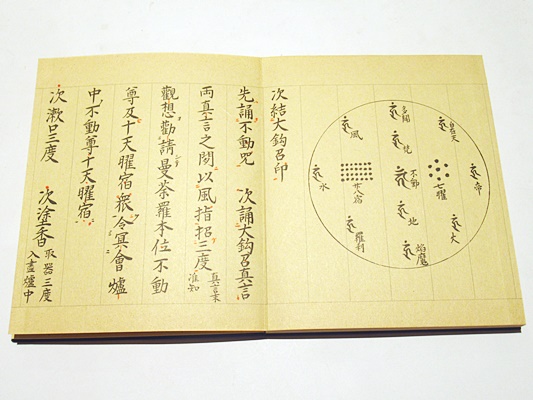 帝
火
七曜
多聞
梵
不動
地
焔魔
風
廿八宿
羅刹
水
次結大鈎召印
先誦不動咒 次誦大鈎召真言
両真言之間以風指招三度 真言末准知
觀想勸請曼荼羅本位不動
尊及十天曜宿衆令冥會爐
中不動尊十天曜宿
次漱口三度 次塗香 取器三度入盡爐中